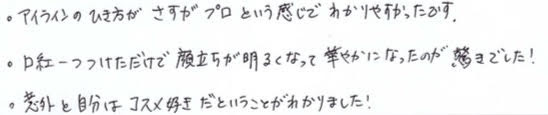 。アイラインのひき方がさすがプロという感じでわかりやすかったです.
。口紅一つつけただけで顔立ちが明るくなって華やかになったのが驚きでした!
。意外と自分はコスメ好きだということがわかりました!